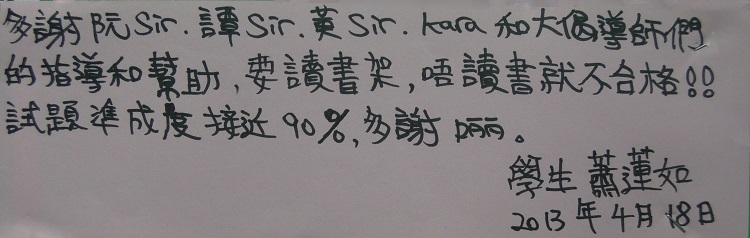 多謝阮Sir.譚Sir.黃Sir.Kara和大偈導師們
的指導和幫助,要讀書架,唔讀書就不合格!!
試題準成度接近90%,多謝晒。
學生 蕭蓮如
2013年4月18日